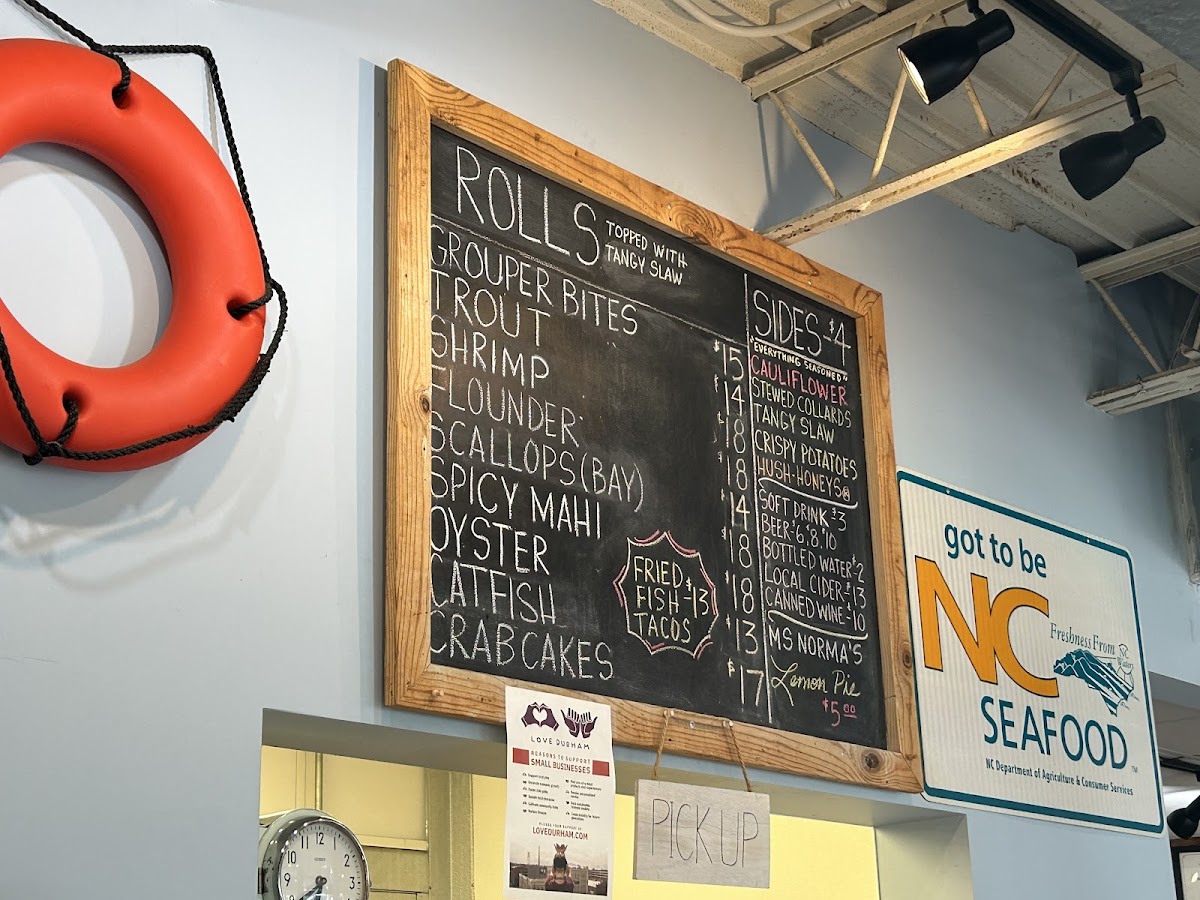 ROLLS TOPPED WITH
TANGY SLAW
GROUPER BITES $15
TROUT $14
SHRIMP $18
FLOUNDER $18
SCALLOPS (BAY) $14
SPICY MAHI $18
OYSTER $18
CATFISH $13
CRABCAKES $17
FRIED
FISH -$13
TACOS
SIDES-$4
"EVERYTHING SEASONED"
CAULIFLOWER
STEWED COLLARDS
TANGY SLAW
CRISPY POTATOES
HUSH-HONEYS®
SOFT DRINK-$3
BEER-$6, 8, 10
BOTTLED WATER-$2
LOCAL CIDER-$13
CANNED WINE-$10
MS NORMA'S
Lemon Pie
$5.00
got to be
NC
Freshness From NC
Waters
SEAFOOD™
NC Department of Agriculture & Consumer Services
LOVE DURHAM
REASONS TO SUPPORT
SMALL BUSINESSES
LOVEDURHAM.COM
PICK UP
11 12 1
10 2
9 3
8 4